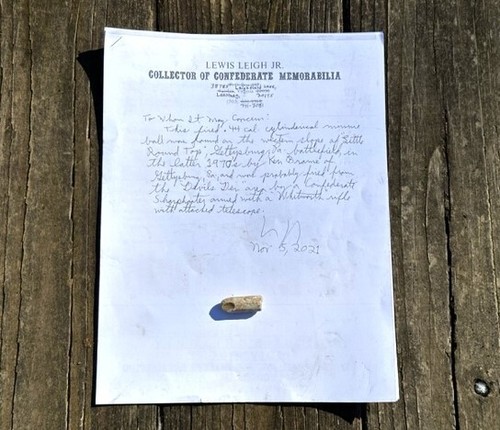 LEWIS LEIGH JR.
COLLECTOR OF CONFEDERATE MEMORABILIA
To Whom It May Concern:
This fired .44 cal. cylindrical minnie
ball was found on the western slopes of Little
Round Top, Gettysburg, Pa. battlefield in
the latter 1970's by Ken Brame of
Gettysburg, Pa and was probably fired from
the "Devils Den" area by a Confederate
Sharpshooter armed with a Whitworth rifle
with attached telescope.
Nov 5, 2021